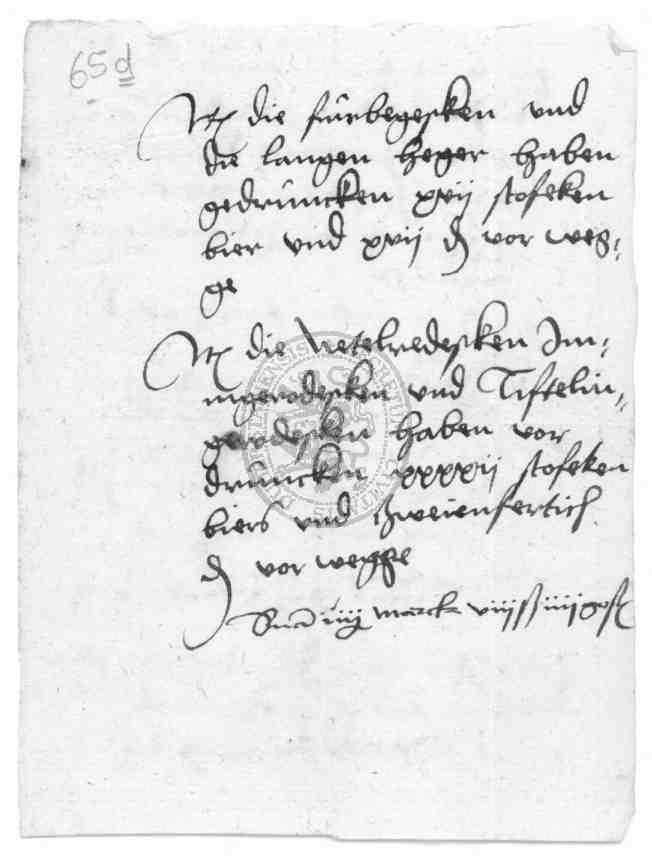 65 d
It die furbegesken und
die langen heger haben
gedruncken xvij stofeken
bier vnd xvij d vor weg-
ge
It die Netelredesken Im-
mgerodesken vnd Tiftelin-
gerodesken haben vor
druncken xxxxij stofeken
biers vnd zweienfertich
d vor wegge
Sma iiij marck viij ß iiij